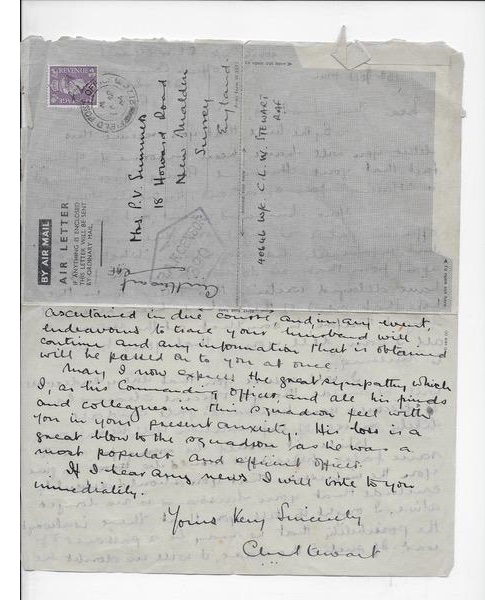 REVENUE
BY AIR MAIL
AIR LETTER
IF ANYTHING IS ENCLOSED
THIS LETTER WILL BE SENT
BY ORDINARY MAIL.
Mrs. P.V. Summers
18 Howard Road
New Malden
Surrey
England
40646 W/C C.L.W. STEWART
RAF
ascertained in due course and, in any event,
endeavours to trace your husband will
continue and any information that is obtained
will be passed on to you at once.
May I now express the great sympathy which
I, as his Commanding Officer, and all his friends
and colleagues in this squadron feel with
you in your present anxiety. His loss is a
great blow to the squadron as he was a
most popular and efficient officer.
If I hear any news I will write to you
immediately.
Yours Very Sincerely